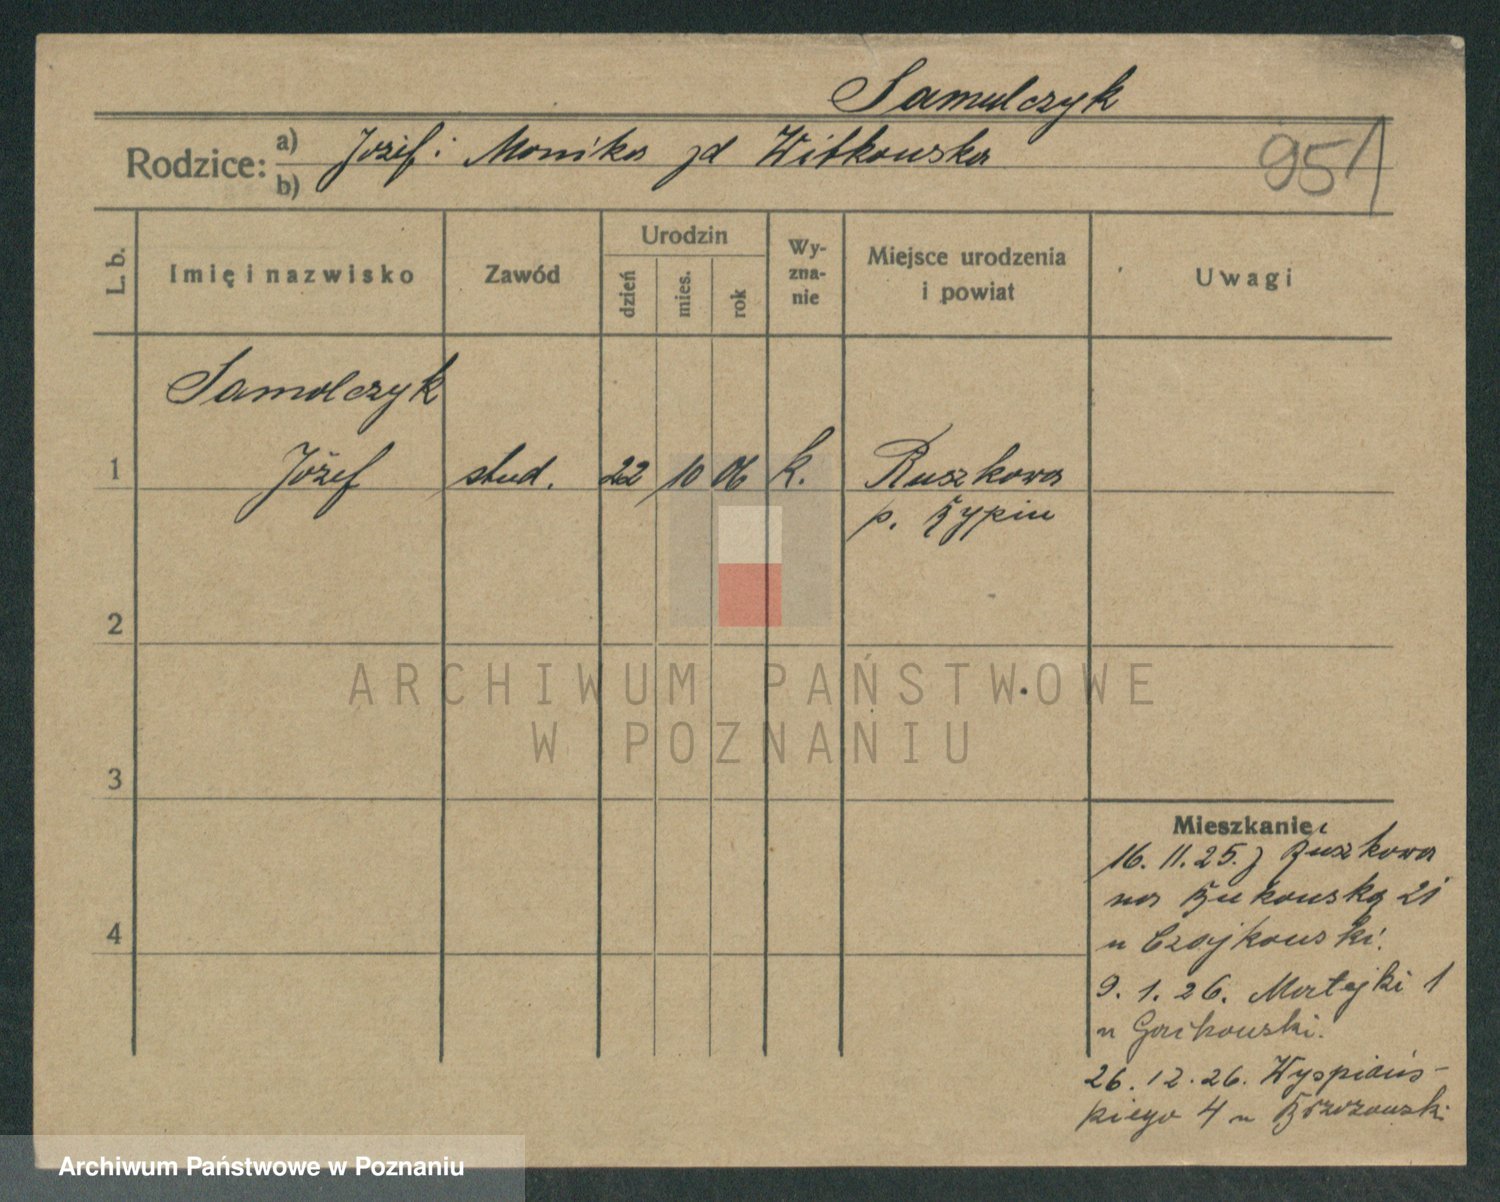 Samulczyk
Rodzice: a) Józef i Monika zd Witkowska
b)
951
L. b.
Imię i nazwisko
Zawód
Urodzin
dzień
mies.
rok
Wy-
zna-
nie
Miejsce urodzenia
i powiat
Uwagi
Samolczyk
1 Józef stud. 22 10 06 k. Ruszkowa
p. Rypin
2
3
4
ARCHIWUM PAŃSTWOWE
W POZNANIU
Mieszkanie:
16. 11. 25. z Ruszkowa
na Bukowską 21
u Czajkowski.
9. 1. 26. Matejki 1
u
26. 12. 26. Wyspiańs-
kiego 4 u Brzozowski
Archiwum Państwowe w Poznaniu